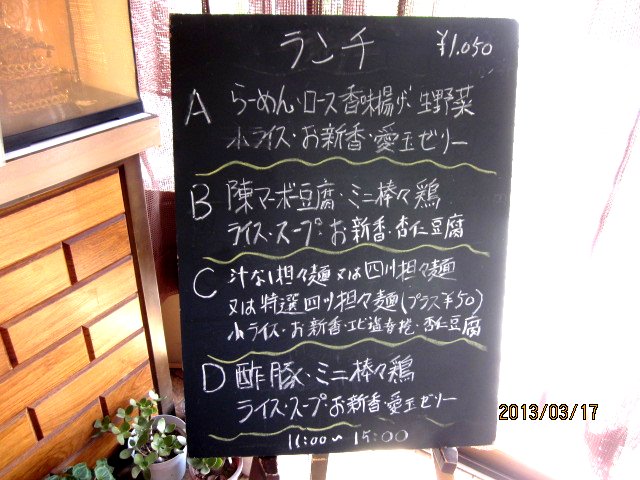 ランチ ¥1.050
A らーめん・ロース香味揚げ・生野菜
小ライス・お新香・愛玉ゼリー
B 陳マーボー豆腐・ミニ棒々鶏
ライス・スープ・お新香・杏仁豆腐
C 汁なし担々麺 又は 四川担々麺
又は特選四川担々麺(プラス¥50)
小ライス・お新香・エビ塩春捲・杏仁豆腐
D 酢豚・ミニ棒々鶏
ライス・スープ・お新香・愛玉ゼリー
11:00〜15:00
2013/03/17